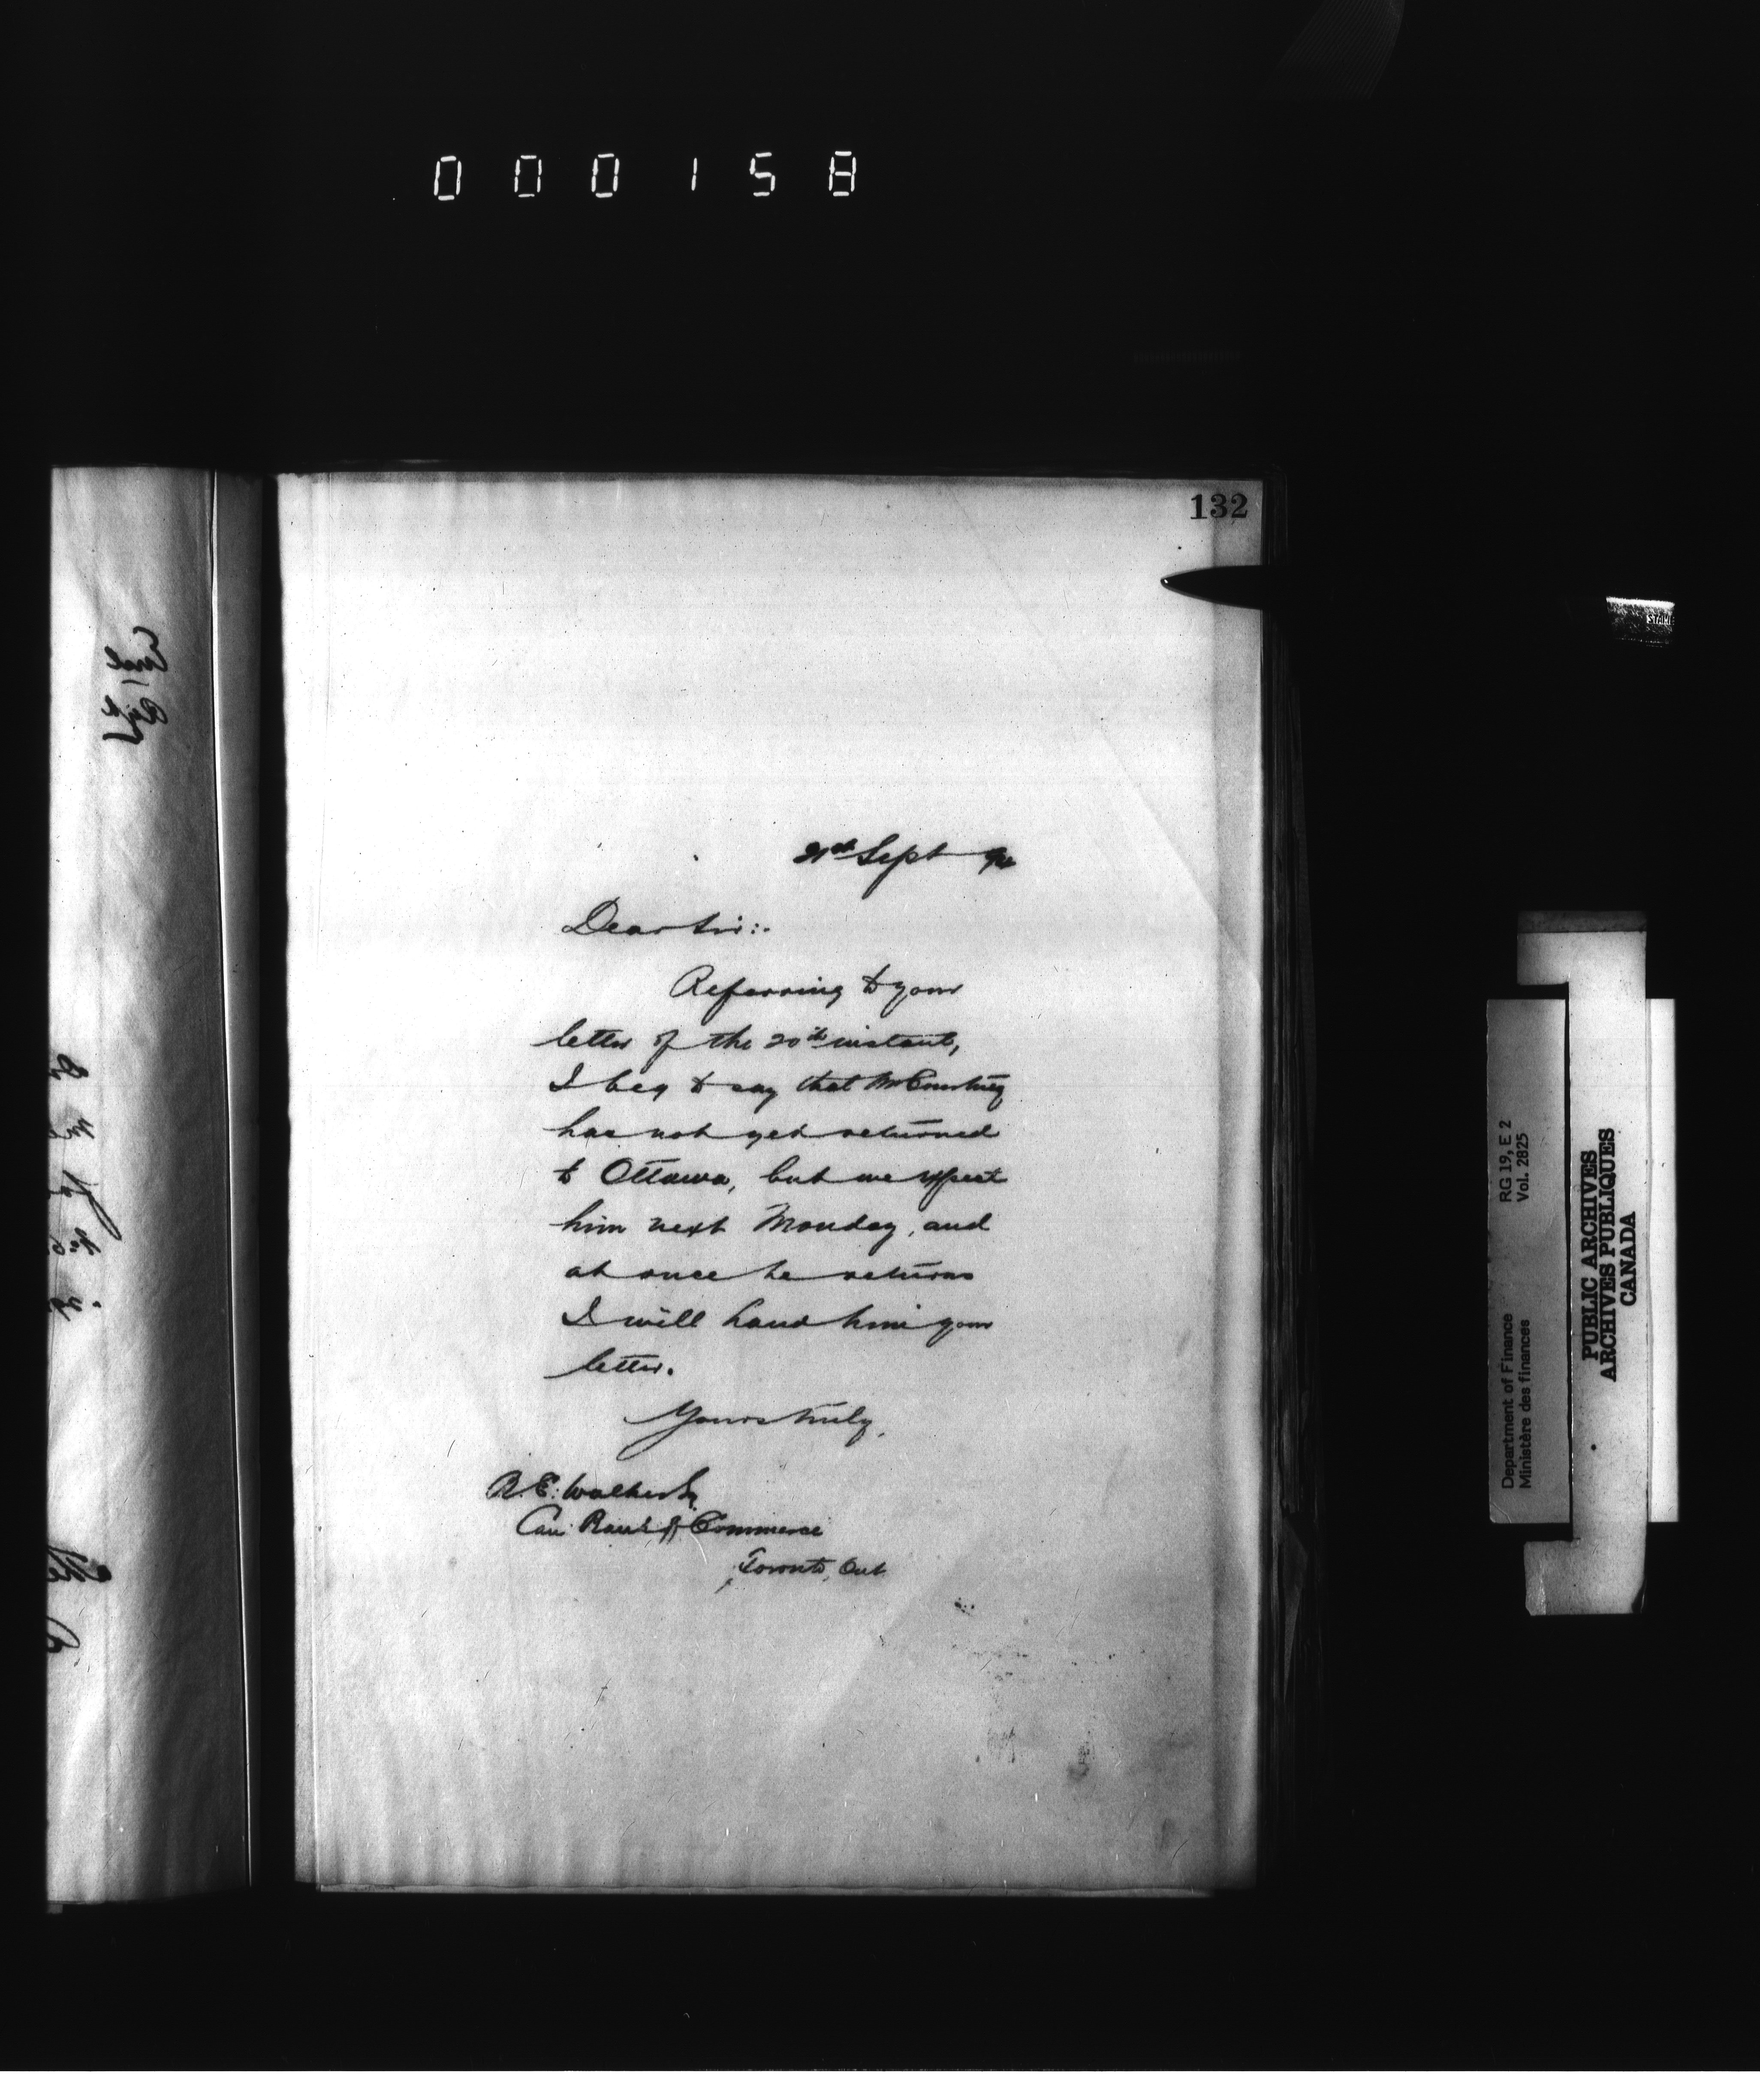 000158
132
21st Sept
Dear Sir:.
Referring to your
letter of the 20th instant,
I beg to say that Mr Courtney
has not yet returned
to Ottawa, but we expect
him next Monday, and
at once he returns
I will hand him your
letter.
Yours truly,
B. E. Walker Esq
Can. Bank of Commerce
Toronto, Ont
Department of Finance RG 19, E 2
Ministère des finances Vol. 2825
PUBLIC ARCHIVES
ARCHIVES PUBLIQUES
CANADA